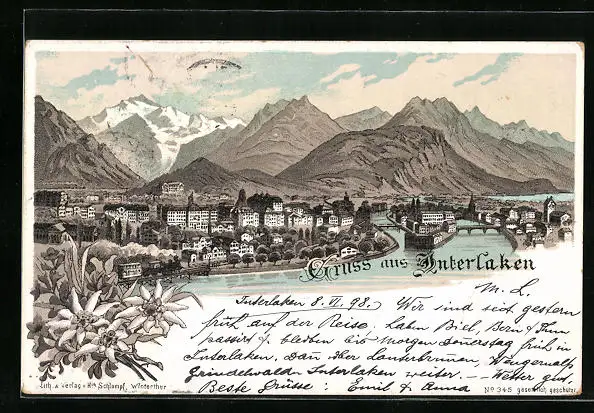 Gruss aus Interlaken
M. L.
Interlaken 8. VI. 98. Wir sind seit gestern
früh auf der Reise, haben Biel, Bern & Thun
passirt & bleiben bis morgen Donnerstag früh in
Interlaken, dann über Lauterbrunnen, Wengernalp
Grindelwald Interlaken weiter. — Wetter gut.
Beste Grüsse: Emil & Anna
Lith. & Verlag v. Hch Schlumpf, Winterthur
No 345 gesetzlich geschützt.